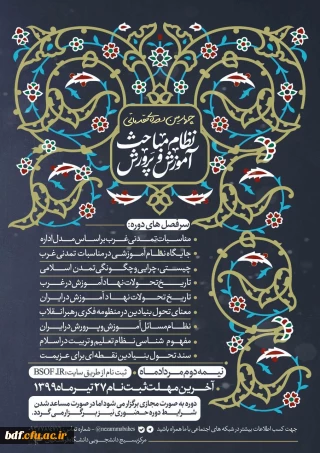 چهارمین دوره مقدماتی
نظام مباحث
آموزش و پرورش
سرفصل های دوره:
مناسبات تمدنی غرب بر اساس مدل اداره
جایگاه نظام آموزشی در مناسبات تمدنی غرب
چیستی، چرایی و چگونگی تمدن اسلامی
تاریخ تحولات نهاد آموزش در غرب
تاریخ تحولات نهاد آموزش در ایران
معنای تحول بنیادین در منظومه فکری رهبر انقلاب
نظام مسائل آموزش و پرورش در ایران
مفهوم شناسی نظام تعلیم و تربیت در اسلام
سند تحول بنیادین نقطه ای برای عزیمت
نیمه دوم مرداد ماه
ثبت نام از طریق سایت: BSOF.IR
آخرین مهلت ثبت نام ۲۷ تیر ماه ۱۳۹۹
دوره به صورت مجازی برگزار می شود اما در صورت مساعد شدن
شرایط دوره حضوری نیز برگزار می گردد.
جهت کسب اطلاعات بیشتر در شبکه های اجتماعی با ما همراه باشید
مرکز بسیج دانشجویی
bdf.cfu.ac.ir